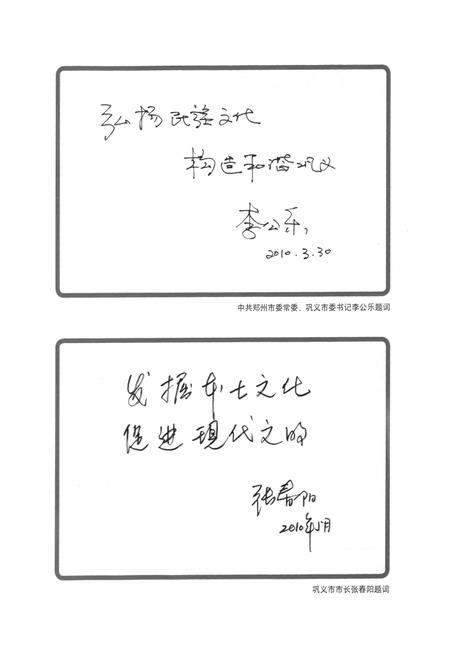 弘扬民族文化
构造和谐巩义
李公乐
2010.3.30
中共郑州市委常委、巩义市委书记李公乐题词
发掘本土文化
促进现代文明
张春阳
2010年5月
巩义市市长张春阳题词